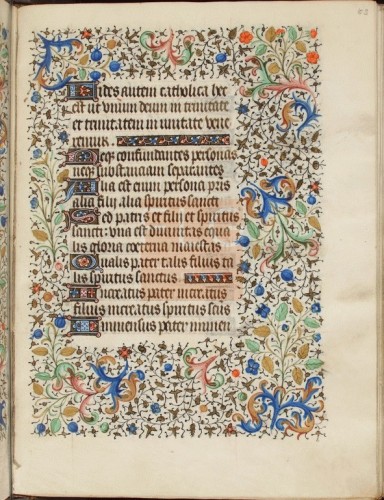 Fides autem catholica hec
est ut vnum deum in trinitate
et trinitatem in unitate vene
remur.
Neq; confundentes personas
neq; substanciam separantes
Alia est enim persona pris
alia filii alia spiritus sancti
Sed patris et filii et spiritus
sancti: vna est diuinitas equa
lis gloria coeterna maiestas
Qualis pater talis filius ta
lis spiritus sanctus
Increatus pater increatus
filius increatus spiritus scus
Immensus pater immen